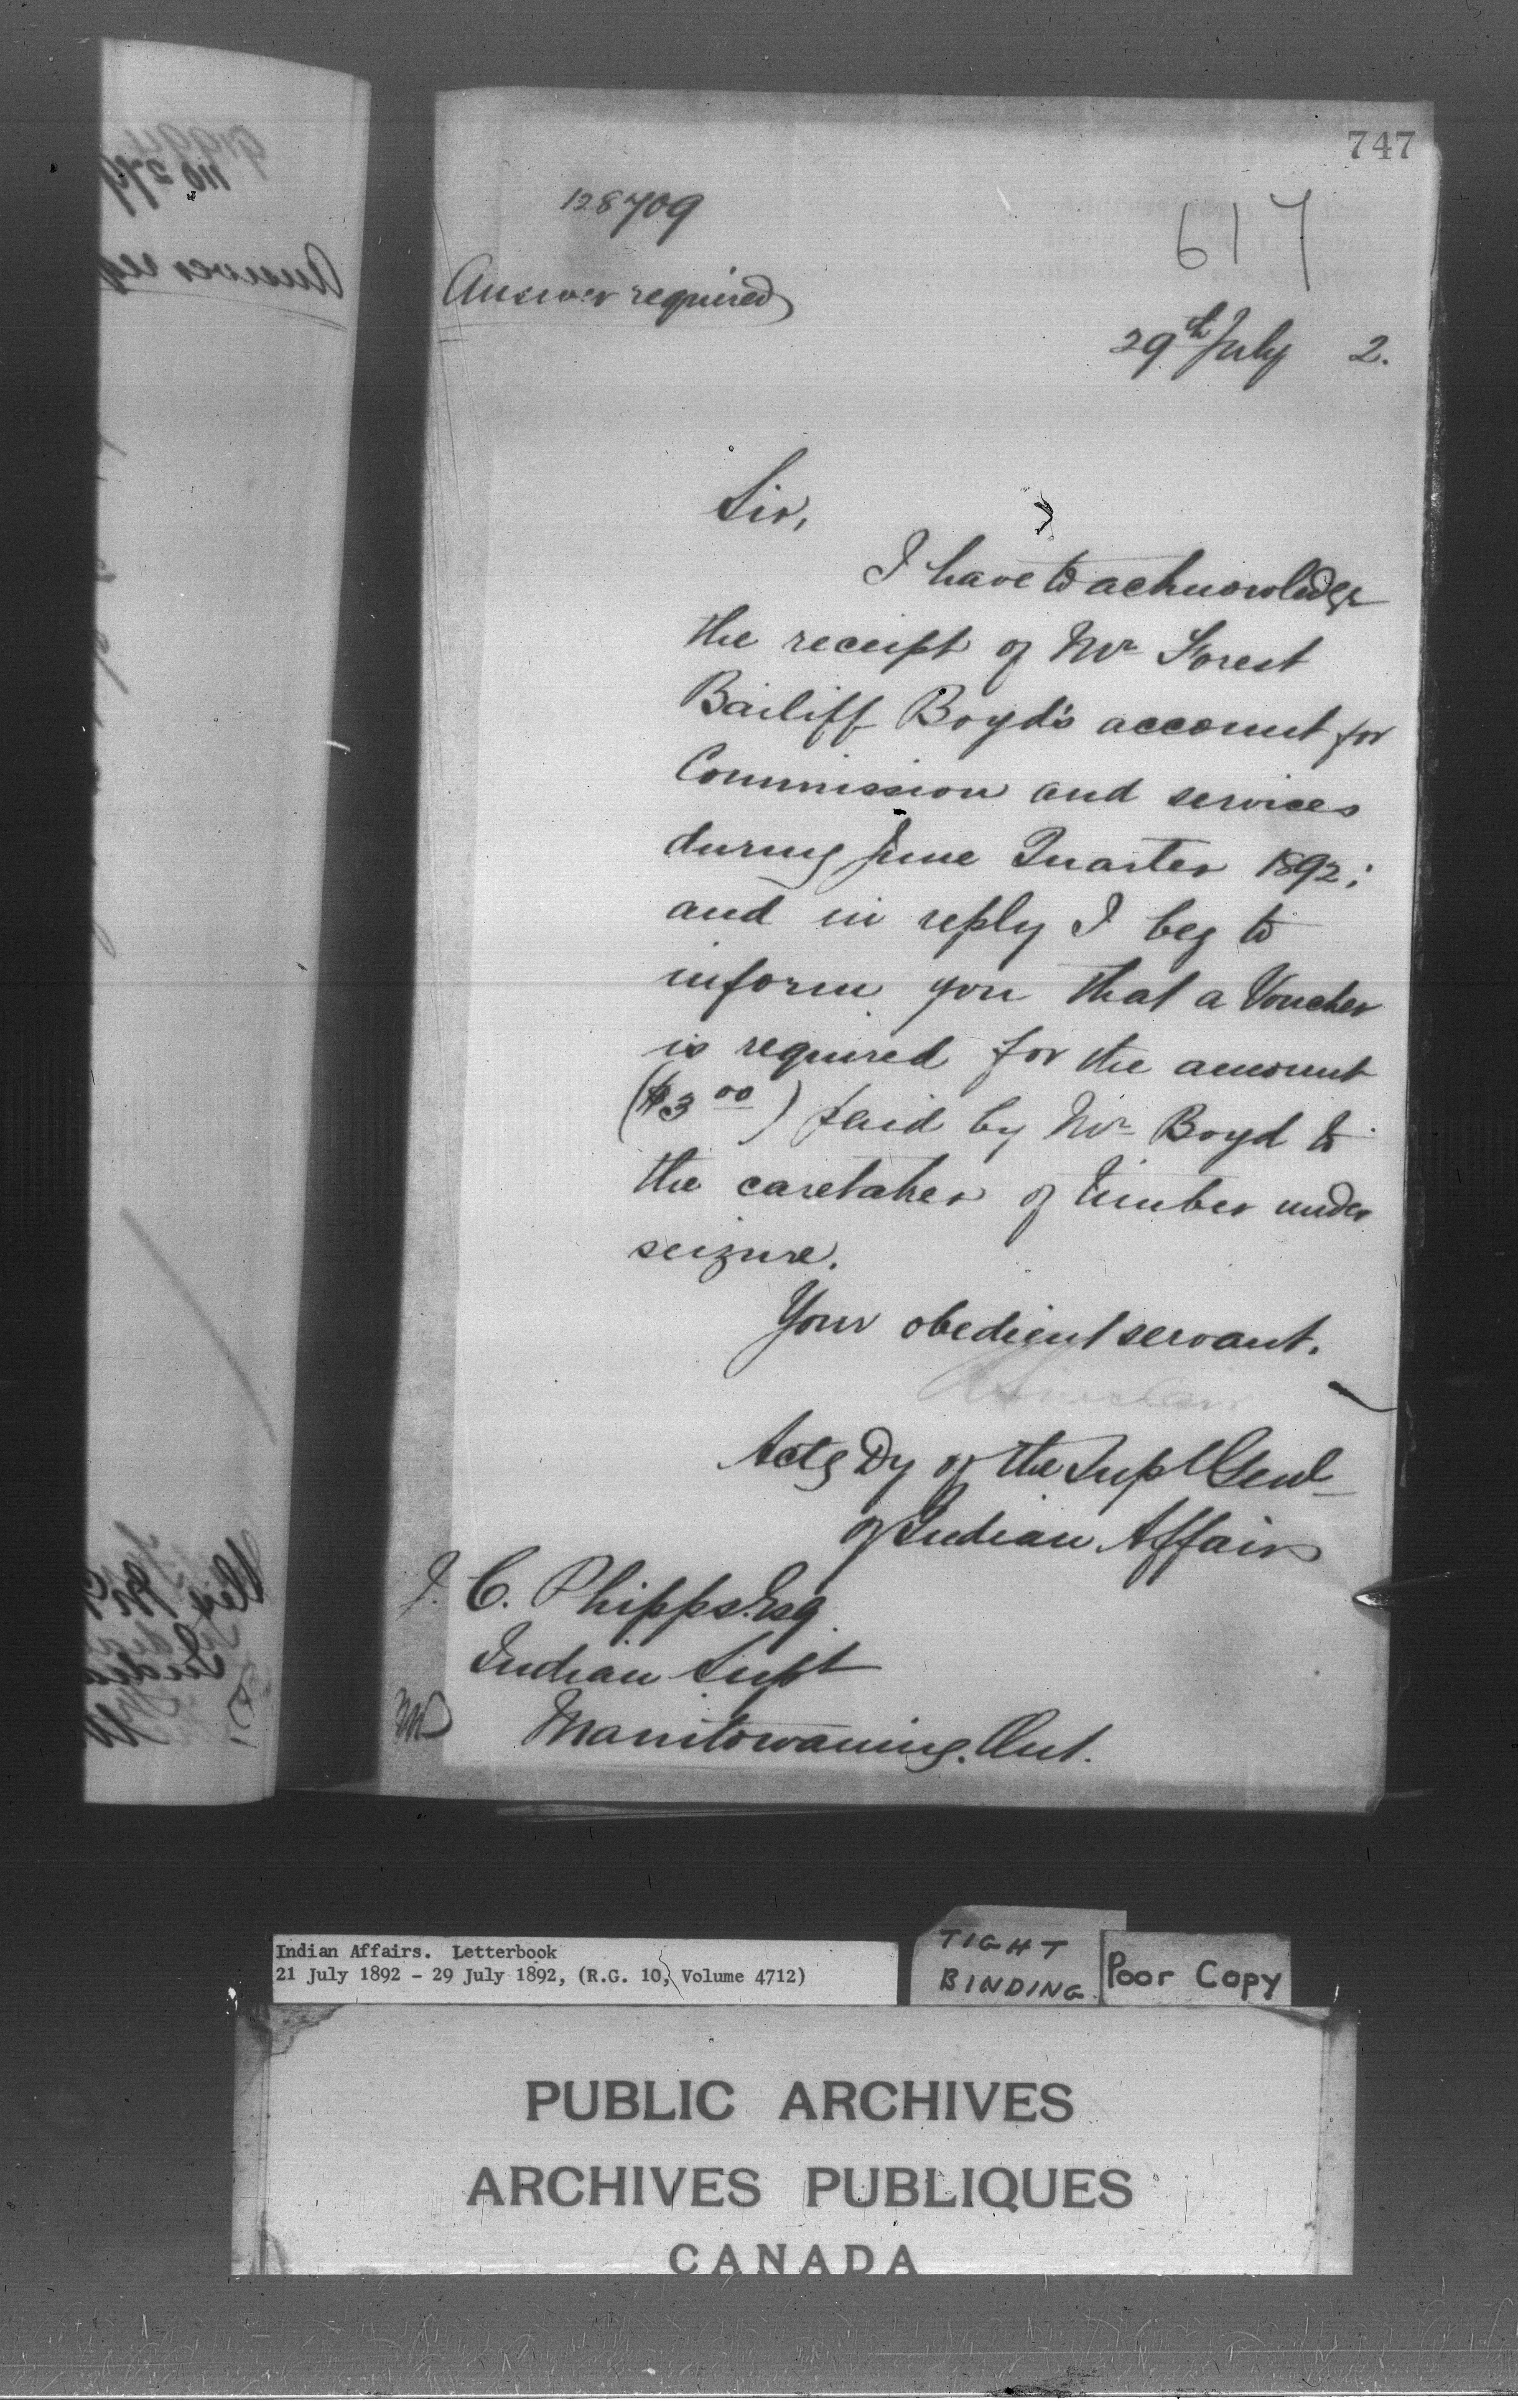 747
128709
617
Answer required
29th July 2.
Sir,
I have to acknowledge
the receipt of Mr Forest
Bailiff Boyd's account for
Commission and services
during June Quarter 1892;
and in reply I beg to
inform you that a Voucher
is required for the amount
($3 00) paid by Mr Boyd to
the caretaker of timber under
seizure.
Your obedient servant.
Actg Dy of the Supt Genl
of Indian Affairs
J. C. Phipps Esq
Indian Supt
Manitowaning. Ont.
Indian Affairs. Letterbook
21 July 1892 - 29 July 1892, (R.G. 10, Volume 4712)
TIGHT
BINDING
Poor Copy
PUBLIC ARCHIVES
ARCHIVES PUBLIQUES
CANADA